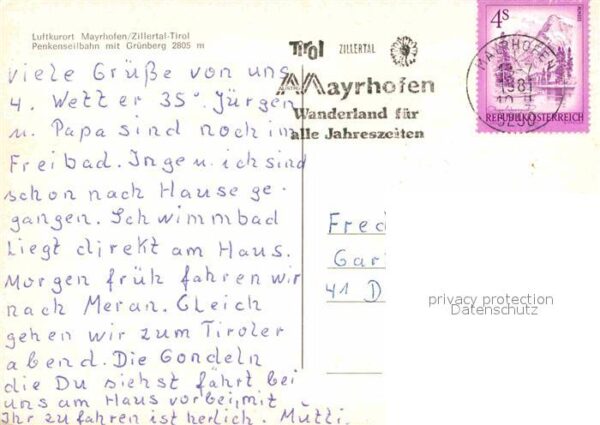 Luftkurort Mayrhofen/Zillertal-Tirol
Penkenseilbahn mit Grünberg 2805 m
viele Grüße von uns
4. Wett er 35°. Jürgen
u. Papa sind noch im
Freibad. Inge u. ich sind
schon nach Hause ge-
gangen. Schwimmbad
liegt direkt am Haus.
Morgen früh fahren wir
nach Meran. Gleich
gehen wir zum Tiroler
abend. Die Gondeln
die Du siehst fährt bei
uns am Haus vorbei, mit
Ihr zu fahren ist herlich. Mutti.
Tirol ZILLERTAL
Mayrhofen
Wanderland für
alle Jahreszeiten
4S
REPUBLIK ÖSTERREICH
MAYRHOFEN
1981
Fred
Gar
41 D
privacy protection
Datenschutz